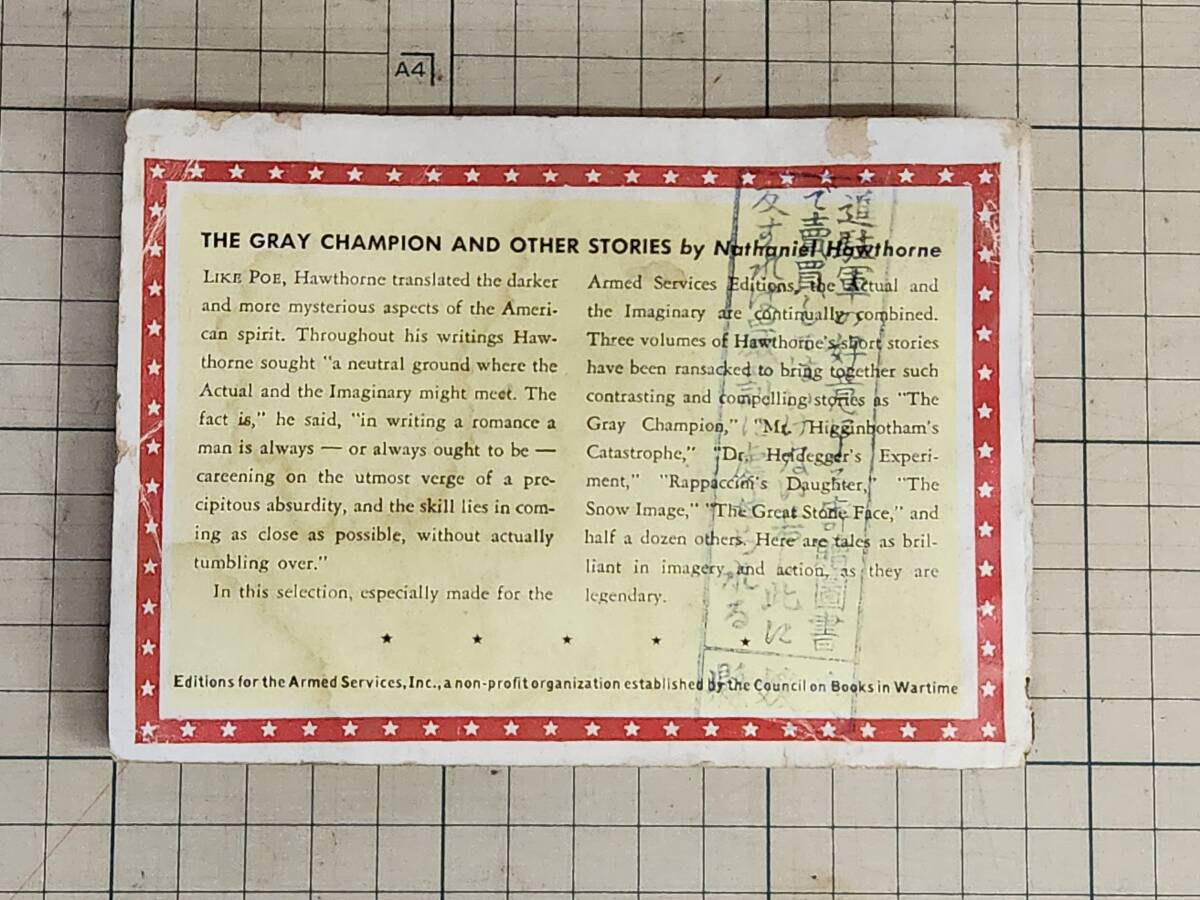 A4
THE GRAY CHAMPION AND OTHER STORIES by Nathaniel Hawthorne
LIKE POE, Hawthorne translated the darker
and more mysterious aspects of the Ameri-
can spirit. Throughout his writings Haw-
thorne sought "a neutral ground where the
Actual and the Imaginary might meet. The
fact is," he said, "in writing a romance a
man is always — or always ought to be —
careening on the utmost verge of a pre-
cipitous absurdity, and the skill lies in com-
ing as close as possible, without actually
tumbling over."
In this selection, especially made for the
Armed Services Editions, the Actual and
the Imaginary are continually combined.
Three volumes of Hawthorne's short stories
have been ransacked to bring together such
contrasting and compelling stories as "The
Gray Champion," "Mr. Higginbotham's
Catastrophe," "Dr. Heidegger's Experi-
ment," "Rappaccini's Daughter," "The
Snow Image," "The Great Stone Face," and
half a dozen others. Here are tales as bril-
liant in imagery and action, as they are
legendary.
★ ★ ★ ★ ★
Editions for the Armed Services, Inc., a non-profit organization established by the Council on Books in Wartime
進駐軍の好意
で売買し
此に